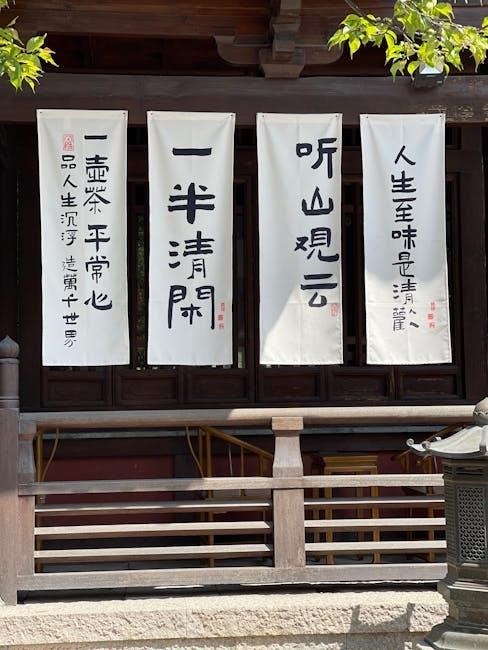 人生至味是清歡
听山观云
一半清閑
一壺茶 平常心
品人生沉浮 造萬千世界